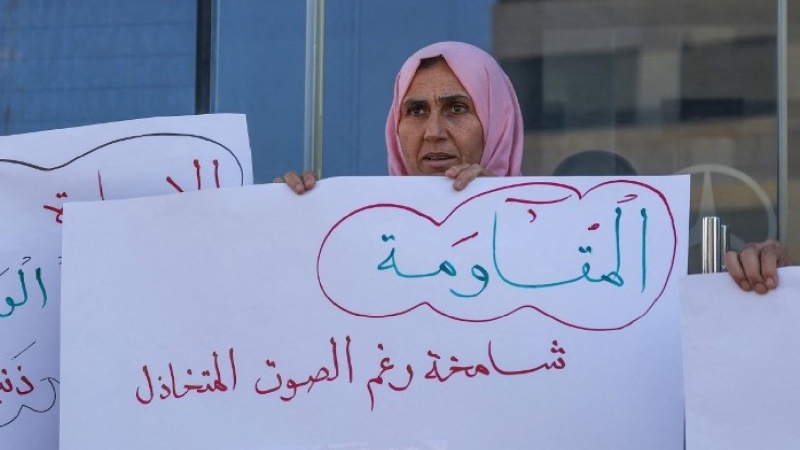 المقاومة
شامخة رغم الصوت المتخاذل